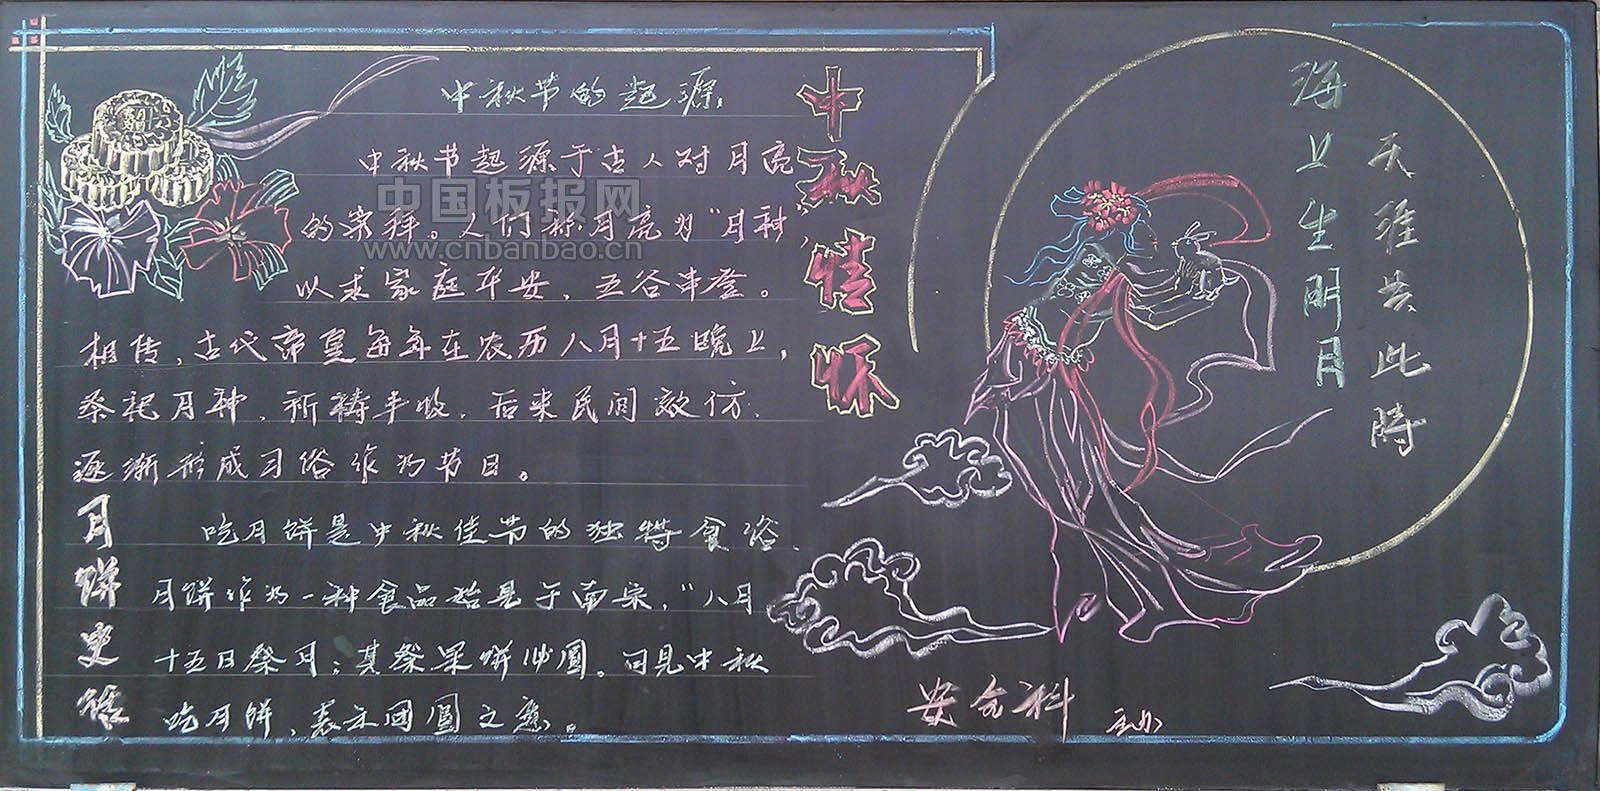 中秋节的起源：
中秋节起源于古人对月亮
的崇拜。人们称月亮为“月神”，
以求家庭平安，五谷丰登。
相传，古代帝皇每年在农历八月十五晚上，
祭祀月神，祈祷丰收，后来民间效仿，
逐渐形成习俗作为节日。
吃月饼是中秋佳节的独特食俗，
月饼作为一种食品始是于南宋，“八月
十五日祭月；其祭果饼必圆。可见中秋
吃月饼，表示团圆之意。
月饼史
中秋情怀
海上生明月
天涯共此時
安全科 主办
中国板报网
www.cnbanbao.cn